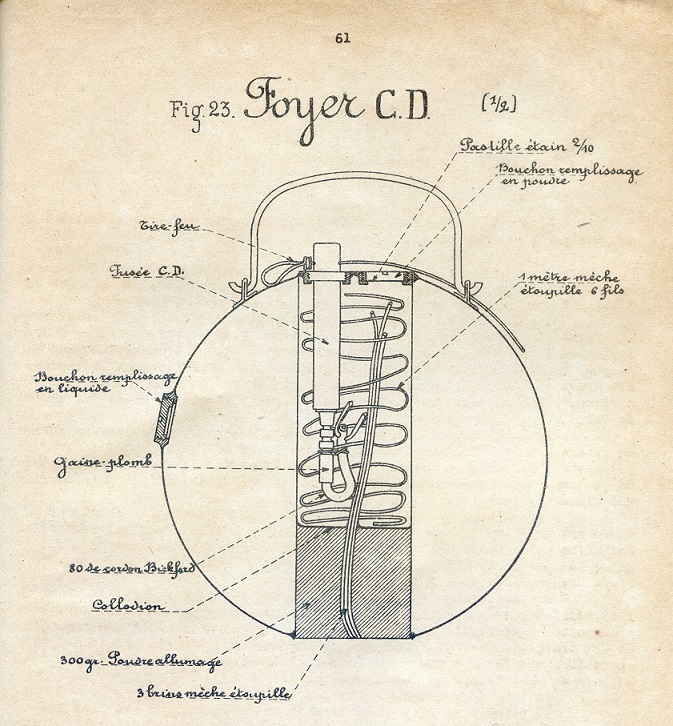 61
Fig. 23. Foyer C.D. (1/2)
Pastille étain 2/10
Bouchon remplissage
en poudre
Tire-feu
Fusée C.D.
1 mètre mèche
étoupille 6 fils
Bouchon remplissage
en liquide
Gaine-plomb
80 de cordon Bickford
Collodion
300gr. Poudre allumage
3 brins mèche étoupille